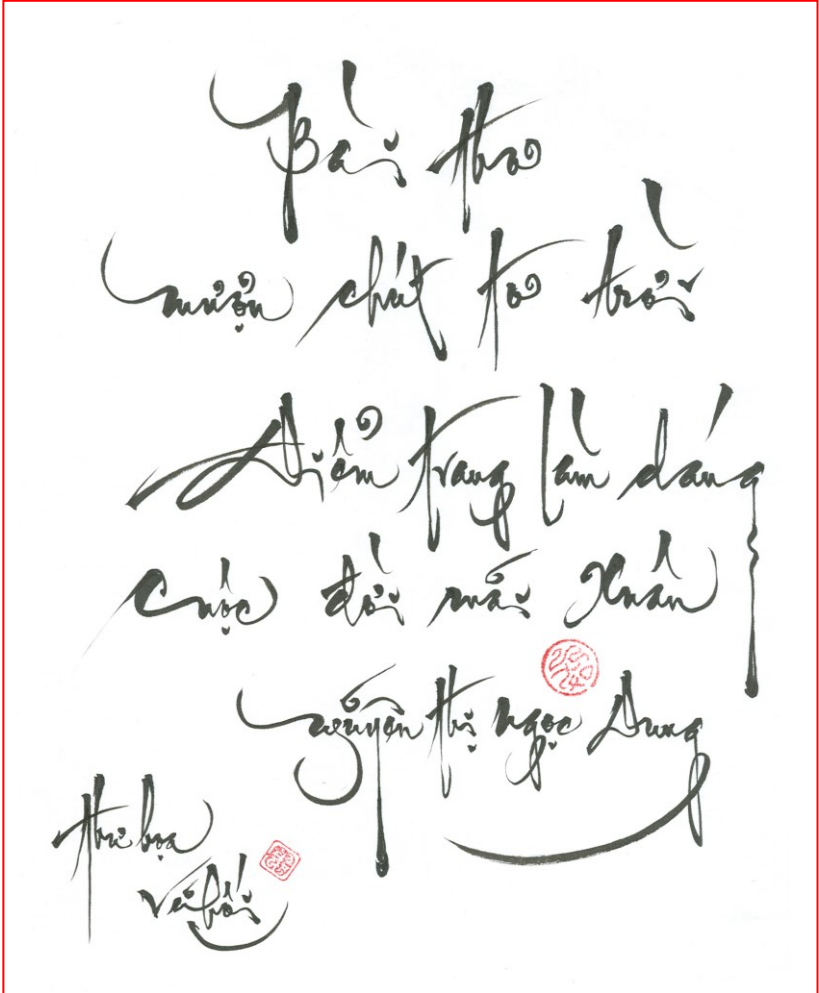 Bài thơ
mượn chút tơ trời
Điểm trang làm dáng
cuộc đời mãi Xuân
Nguyễn Thị Ngọc Dung
Thư họa
Vũ Hối